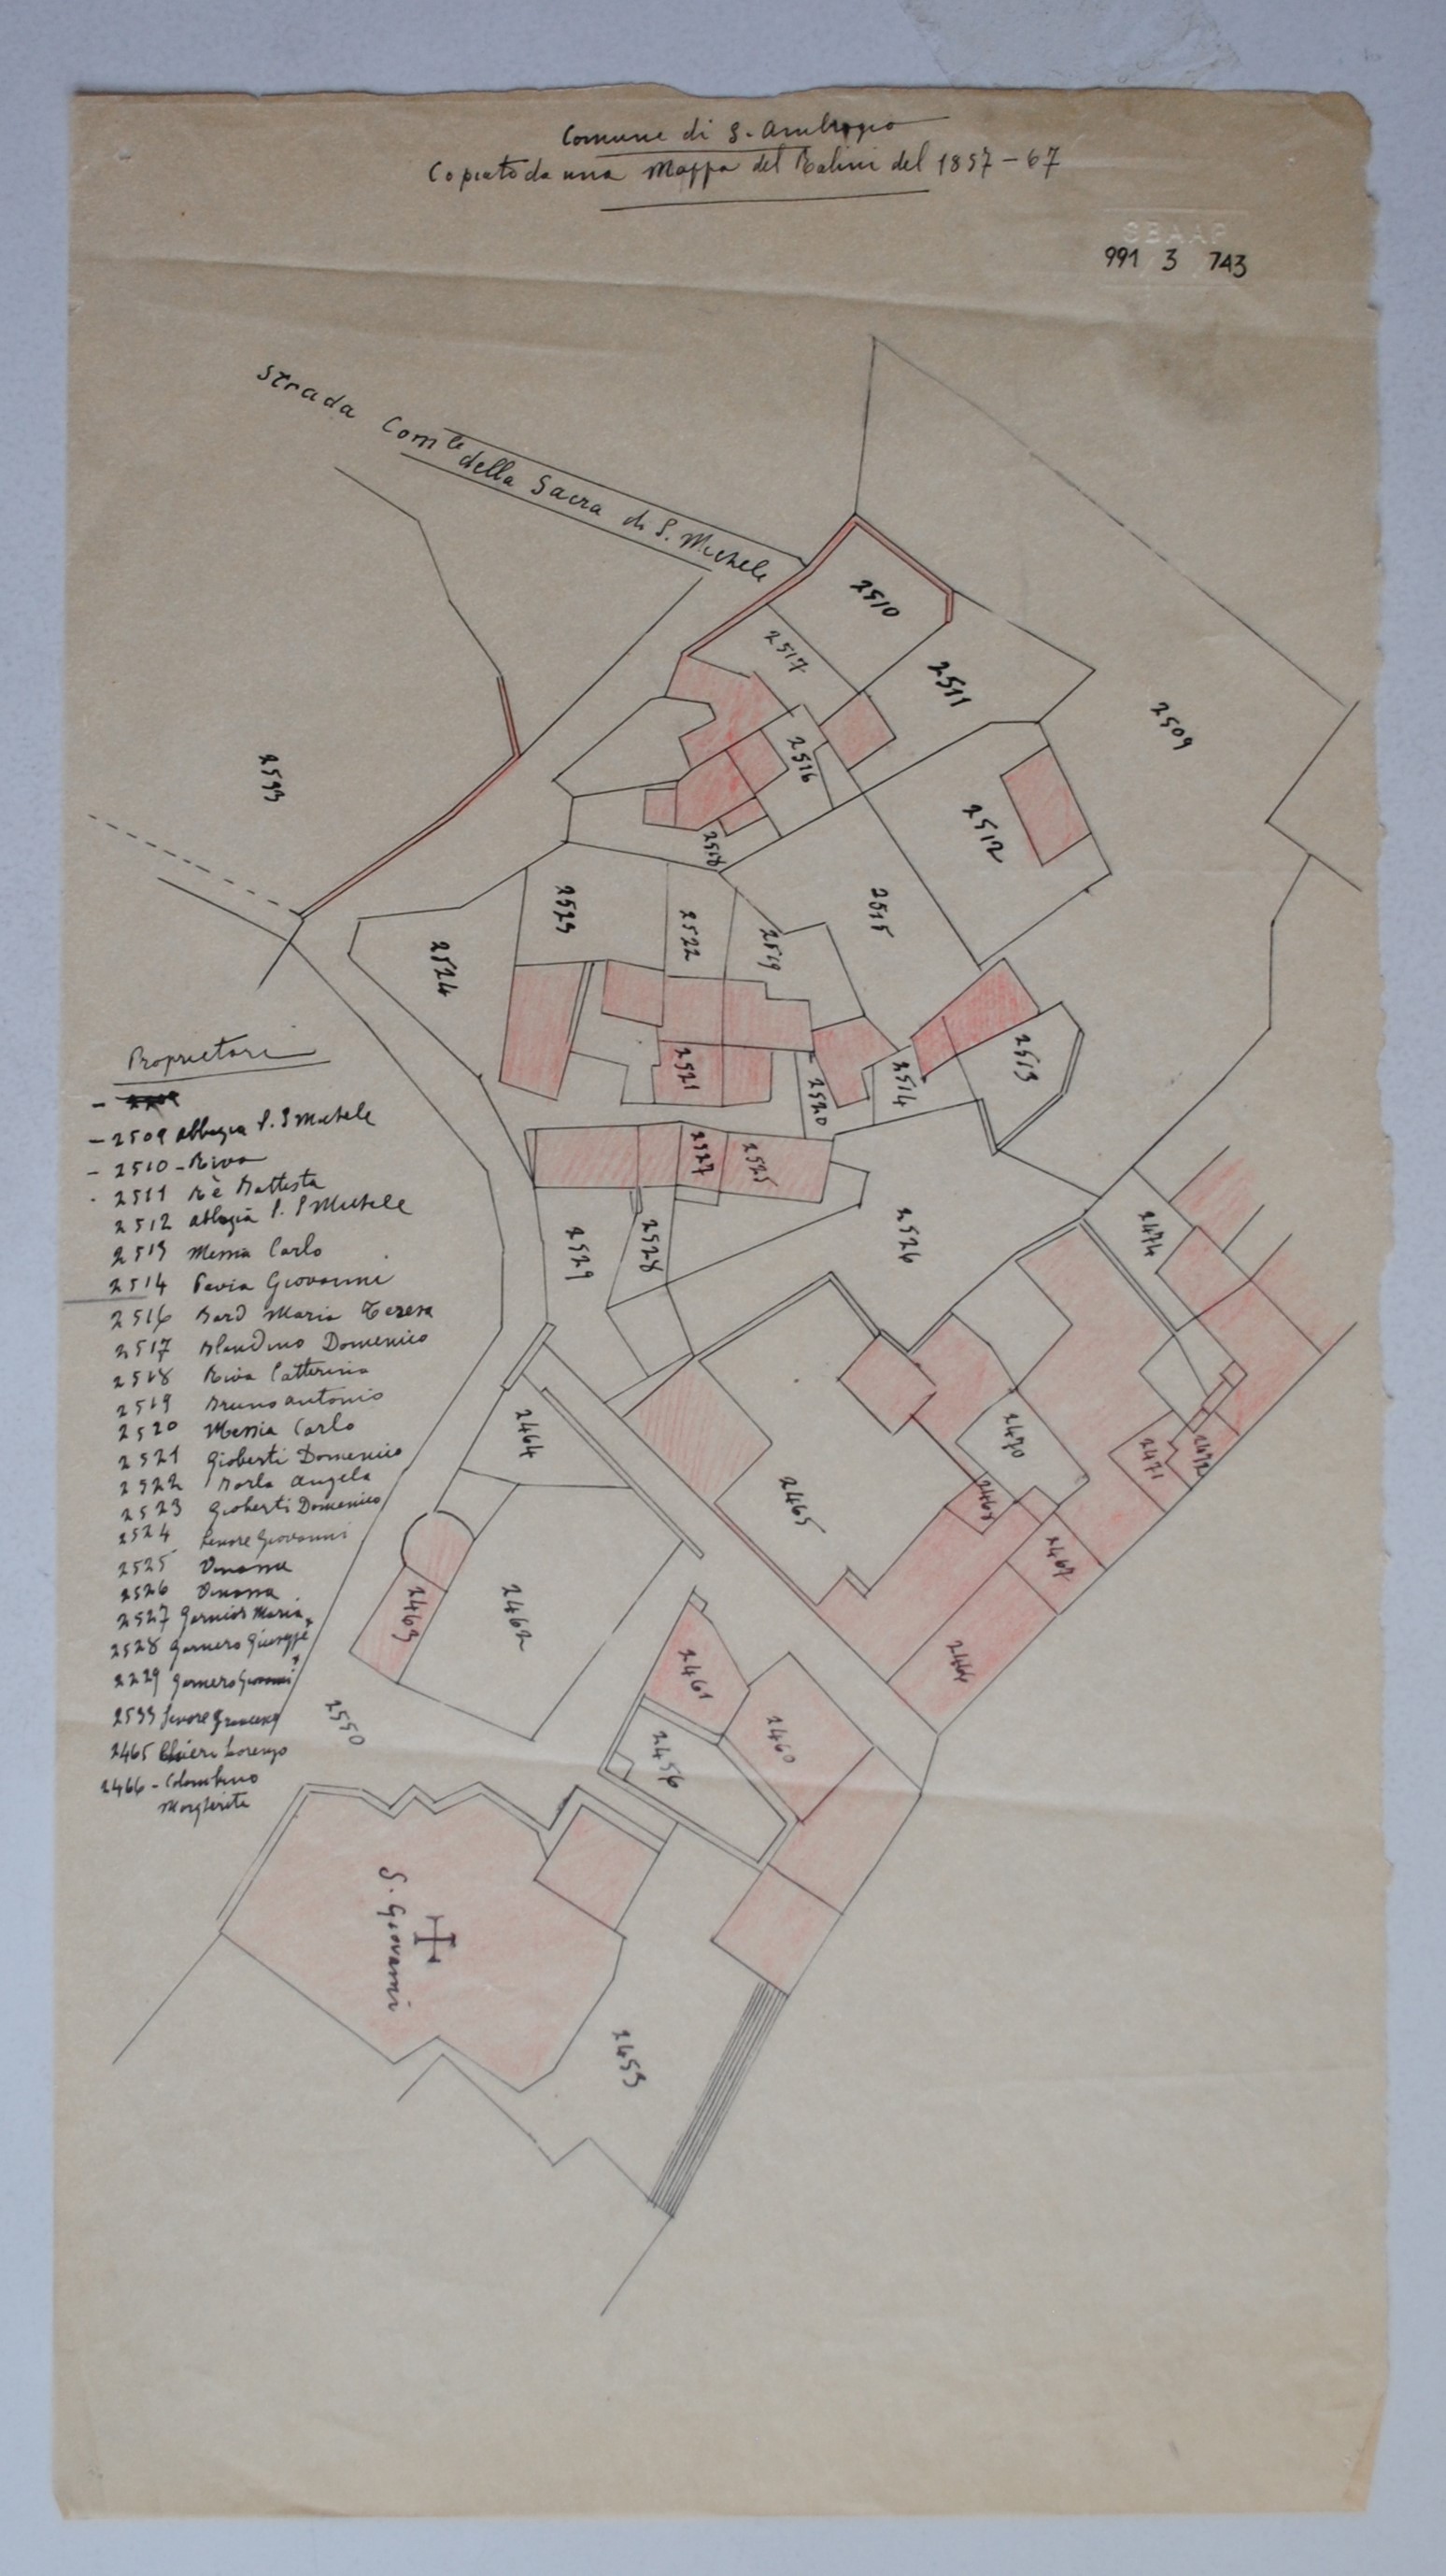 Comune di S. Ambrogio
Copiato da una Mappa del Rabini del 1857-67
SBAAP
991 3 743
Strada Com le
della Sacra di S. Michele
2510
2517
2511
2509
2516
2593
2512
2518
2523
2522
2519
2515
2524
2513
2521
2514
2520
2527
2525
2526
2474
2529
2528
2464
2470
2471
2472
2465
2468
2467
2463
2462
2461
2466
2460
2456
2550
S. Giovanni
2453
Proprietari
- 2509 Abbazia S. Michele
- 2510 - Riva
2511 Rè Battista
2512 Abbazia S. Michele
2513 Messia Carlo
2514 Pavia Giovanni
2516 Bard Maria Teresa
2517 Blandino Domenico
2518 Riva Catterina
2519 Bruno Antonio
2520 Messia Carlo
2521 Gioberti Domenico
2522 Borla Angela
2523 Gioberti Domenico
2524 Giovanni
2525
2526
2527 Maria
2528 Garnero Giuseppe
2229 Garnero Giovanni
2593 Francesco
2465 Chieri Lorenzo
2466 - Colombino
Margherita